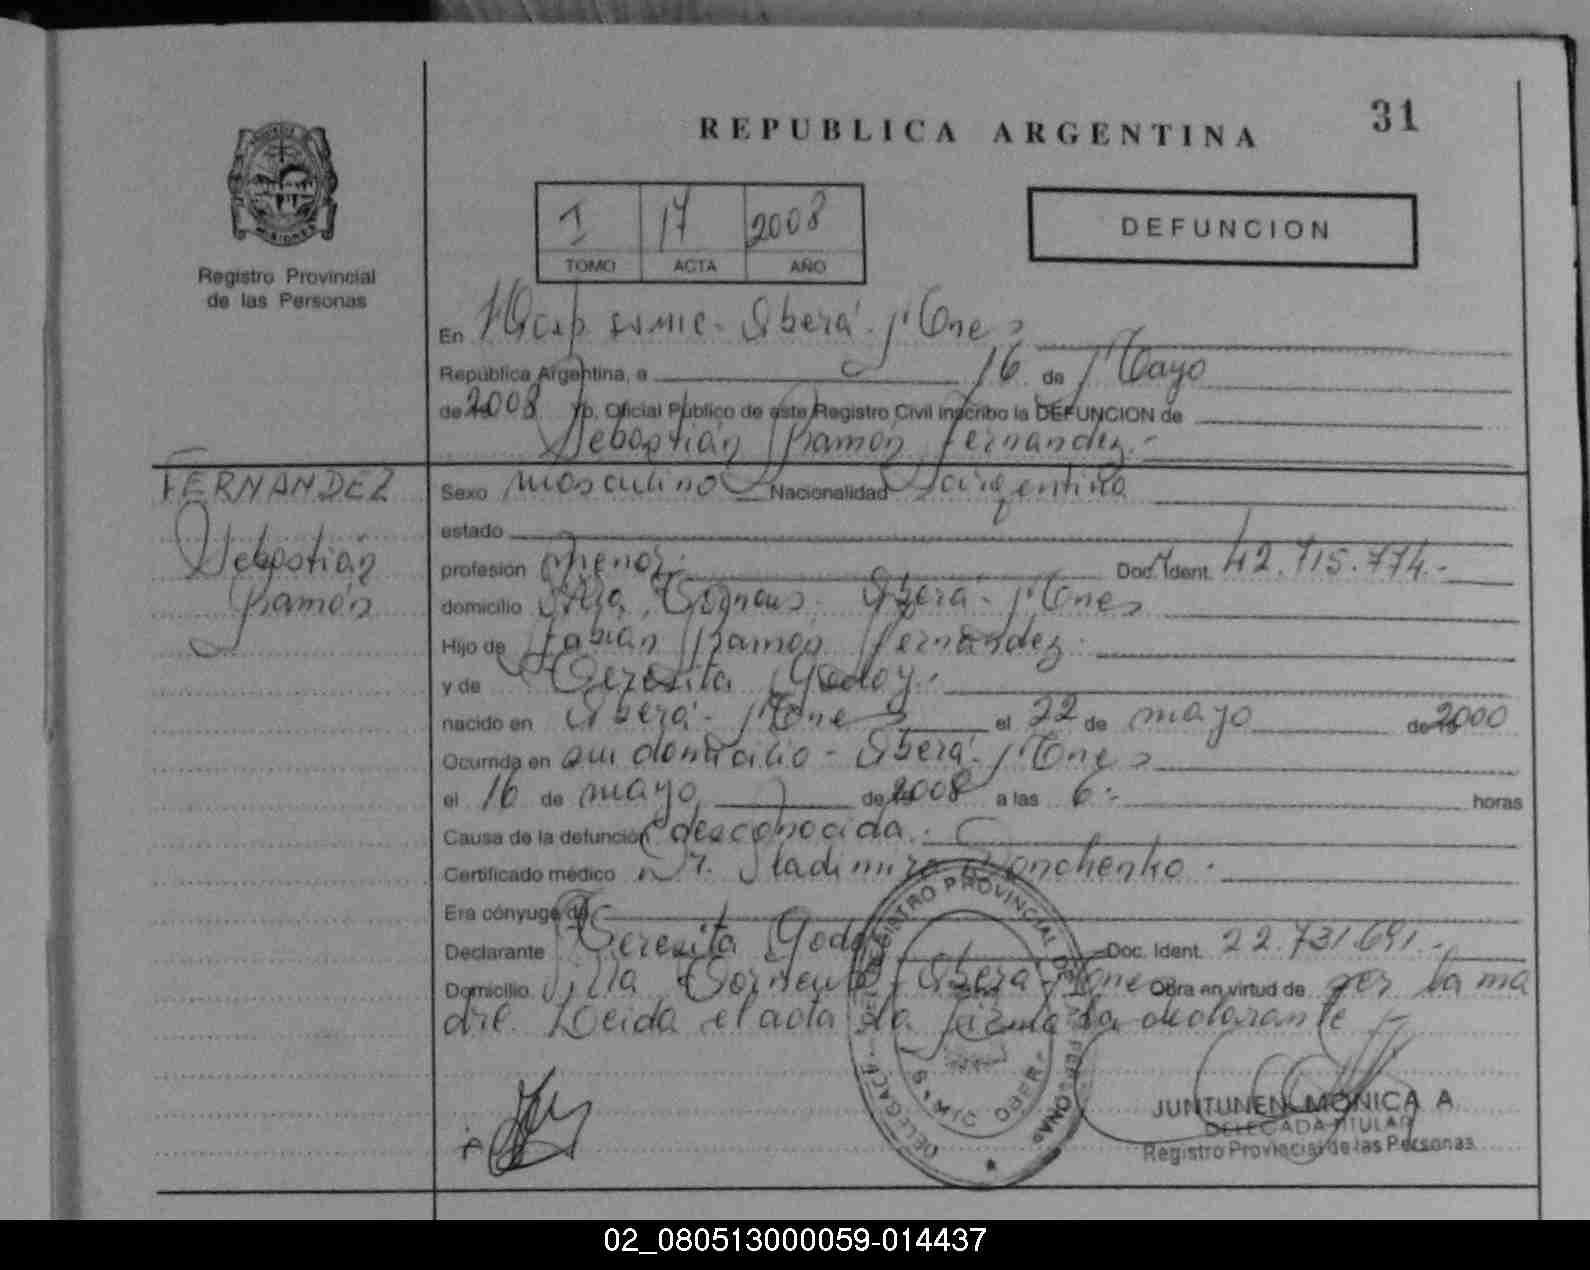 31
REPUBLICA ARGENTINA
MISIONES
Registro Provincial
de las Personas
I 17 2008
TOMO ACTA AÑO
DEFUNCION
En Hosp. SAMIC - Oberá - Mones
República Argentina, a 16 de Mayo
de 2008 yo, Oficial Público de este Registro Civil inscribo la DEFUNCION de
Sebastián Ramón Fernandez.-
FERNANDEZ
Sebastián
Ramón
Sexo masculino Nacionalidad argentina
estado
profesión menor. Doc. Ident. 42.715.774.-
domicilio Villa Oberá - Mones
Hijo de Fabián Ramón Fernández.
y de Teresita Godoy.
nacido en Oberá - Mones el 22 de mayo de 2000
Ocurrida en su domicilio - Oberá - Mones
el 16 de mayo de 2008 a las 6.- horas
Causa de la defunción desconocida.
Certificado médico Dr. Vladimiro
Era cónyuge de
Declarante Teresita Godoy Doc. Ident. 22.731.691.-
Domicilio Villa Oberá - Mones Obra en virtud de ser la ma
dre. Leida el acta la firma la declarante
REGISTRO PROVINCIAL DE LAS PERSONAS
DELEGACION
S.A.MIC OBERA
JUNTUNEN MONICA A.
DELEGADA TITULAR
Registro Provincial de las Personas
02_080513000059-014437